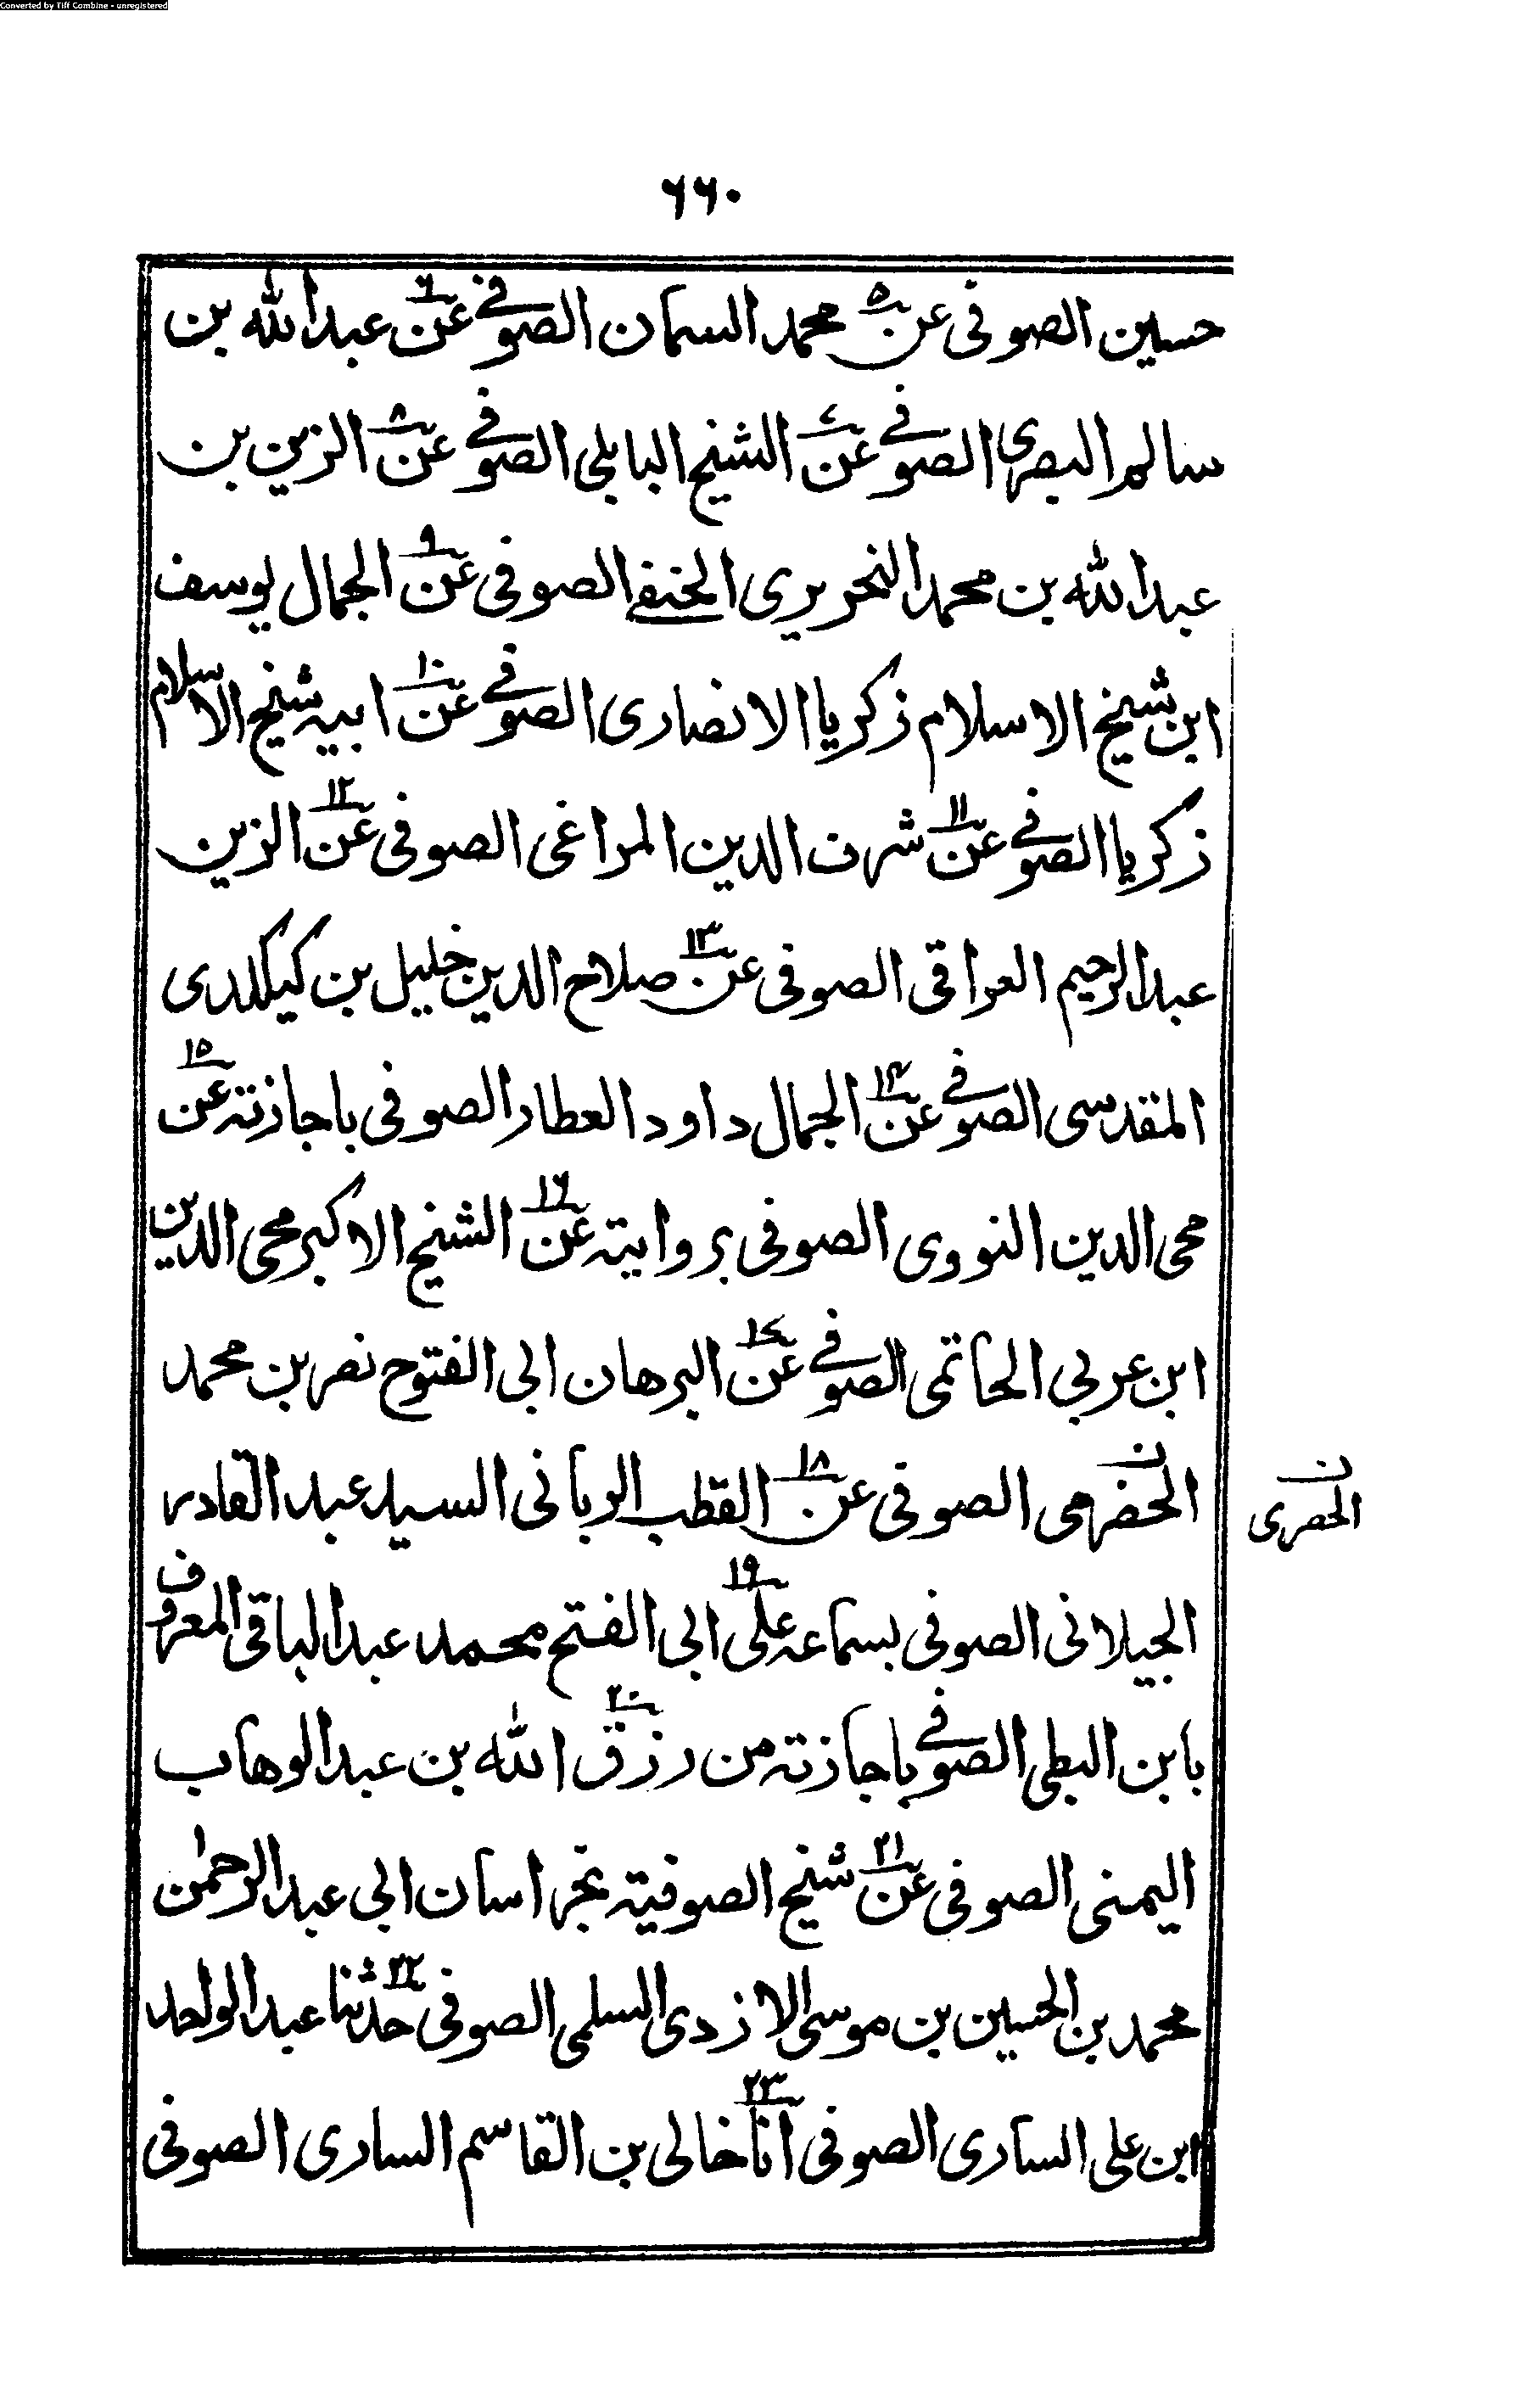 Converted by Tiff Combine - unregistered
۶۶۰
حسین الصوفی عن ۵ محمد السمان الصوفی عن ۶ عبدالله بن
سالم البصری الصوفی عن ۷ الشیخ البابلی الصوفی عن ۸ الزین بن
عبدالله بن محمد النحریری الحنفی الصوفی عن ۹ الجمال یوسف
ابن شیخ الاسلام زکریا الانصاری الصوفی عن ۱۰ ابیه شیخ الاسلام
زکریا الصوفی عن ۱۱ شرف الدین المراغی الصوفی عن ۱۲ الزین
عبدالرحیم العراقی الصوفی عن ۱۳ صلاح الدین خلیل بن کیکلدی
المقدسی الصوفی عن ۱۴ الجمال داود العطار الصوفی باجازته عن ۱۵
محی الدین النووی الصوفی بروایته عن ۱۶ الشیخ الاکبر محی الدین
ابن عربی الحاتمی الصوفی عن ۱۷ البرهان ابی الفتوح نصر بن محمد
الحضرمی ن الصوفی عن ۱۸ القطب الربانی السید عبد القادر
ن الحصری
الجیلانی الصوفی بسماعه علی ۱۹ ابی الفتح محمد عبدالباقی المعروف
بابن البطی الصوفی باجازته من ۲۰ رزق الله بن عبدالوهاب
الیمنی الصوفی عن ۲۱ شیخ الصوفیة بخراسان ابی عبدالرحمٰن
محمد بن الحسین بن موسی الازدی السلمی الصوفی حدثنا ۲۲ عبدالواحد
ابن علی الساری الصوفی انا ۲۳ خالی بن القاسم الساری الصوفی